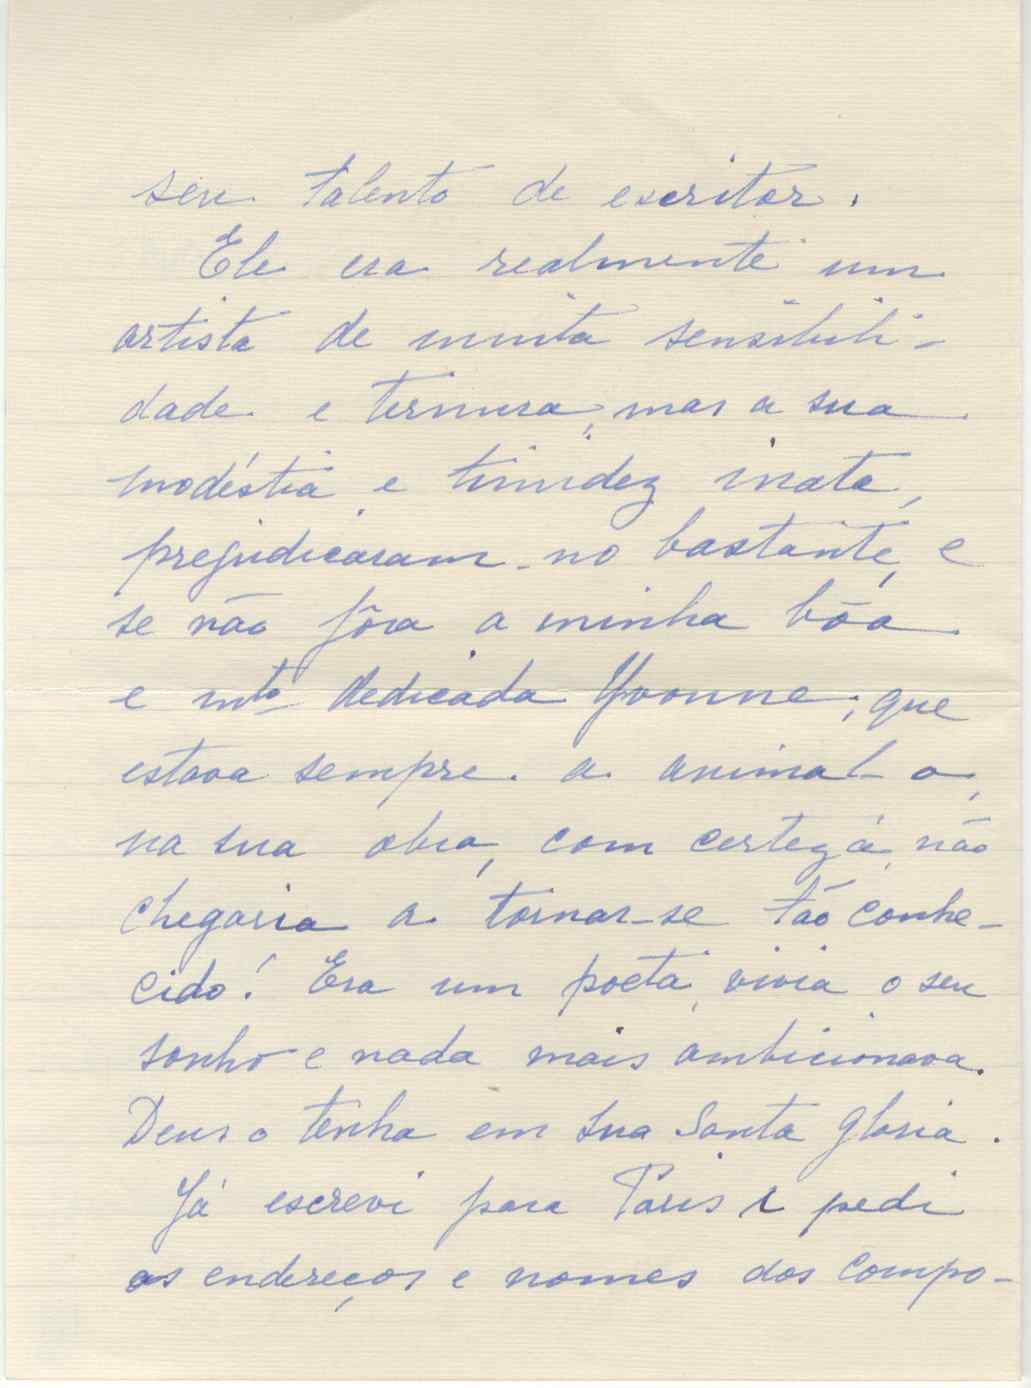 seu talento de escritor.
Ele era realmente um
artista de muita sensibili-
dade e ternura, mas a sua
modéstia e timidez inata,
prejudicaram-no bastante, e
se não fôra a minha bôa
e mto dedicada Yvonne, que
estava sempre a animal-o,
na sua obra, com certeza, não
chegaria a tornar-se tão conhe-
cido! Era um poeta, vivia o seu
sonho e nada mais ambicionava.
Deus o tenha em sua Santa Gloria.
Já escrevi para Paris e pedi
os endereços e nomes dos compo-